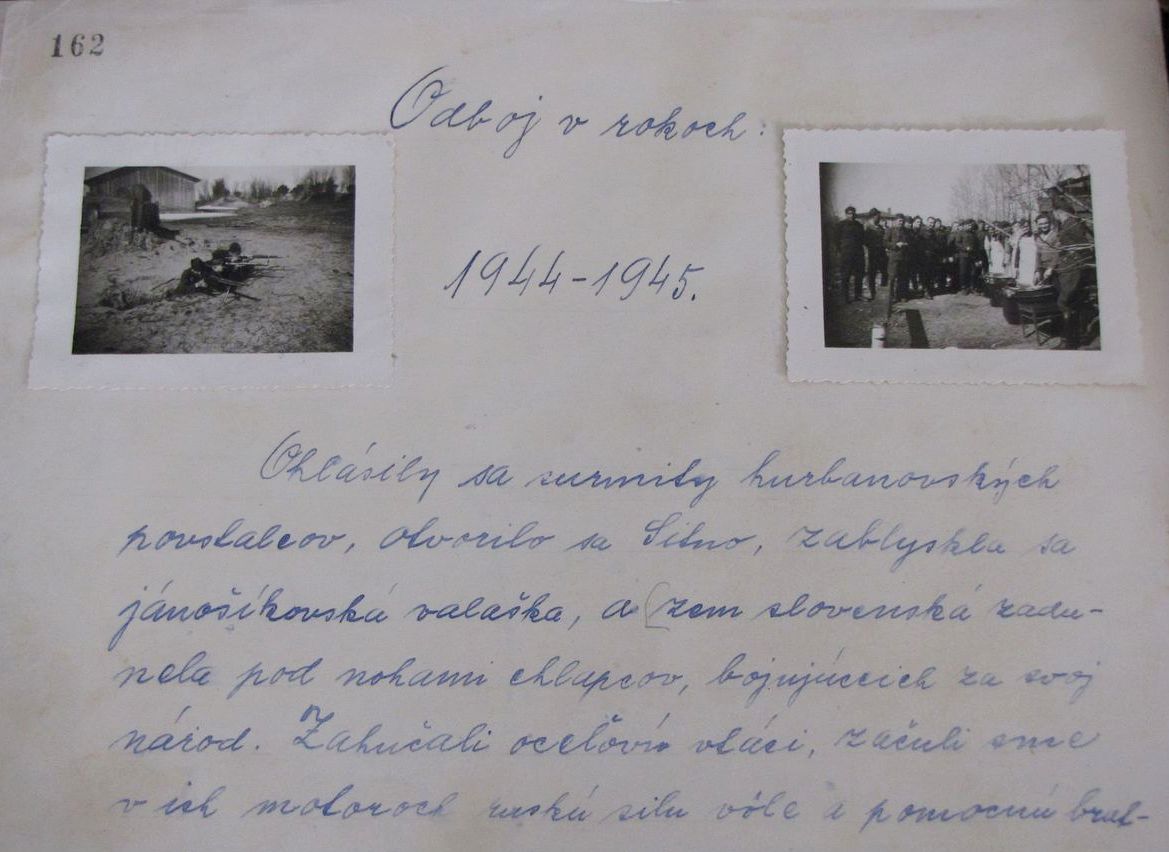 162
Odboj v rokoch:
1944-1945.
Ohlásily sa surmity hurbanovských
povstalcov, otvorilo sa Sitno, zablyskla sa
jánošíkovská valaška, a zem slovenská zadu-
nela pod nohami chlapcov, bojujúcich za svoj
národ. Zahučali oceľoví vtáci, začuli sme
v ich motoroch ruskú silu vôle a pomocnú brat-